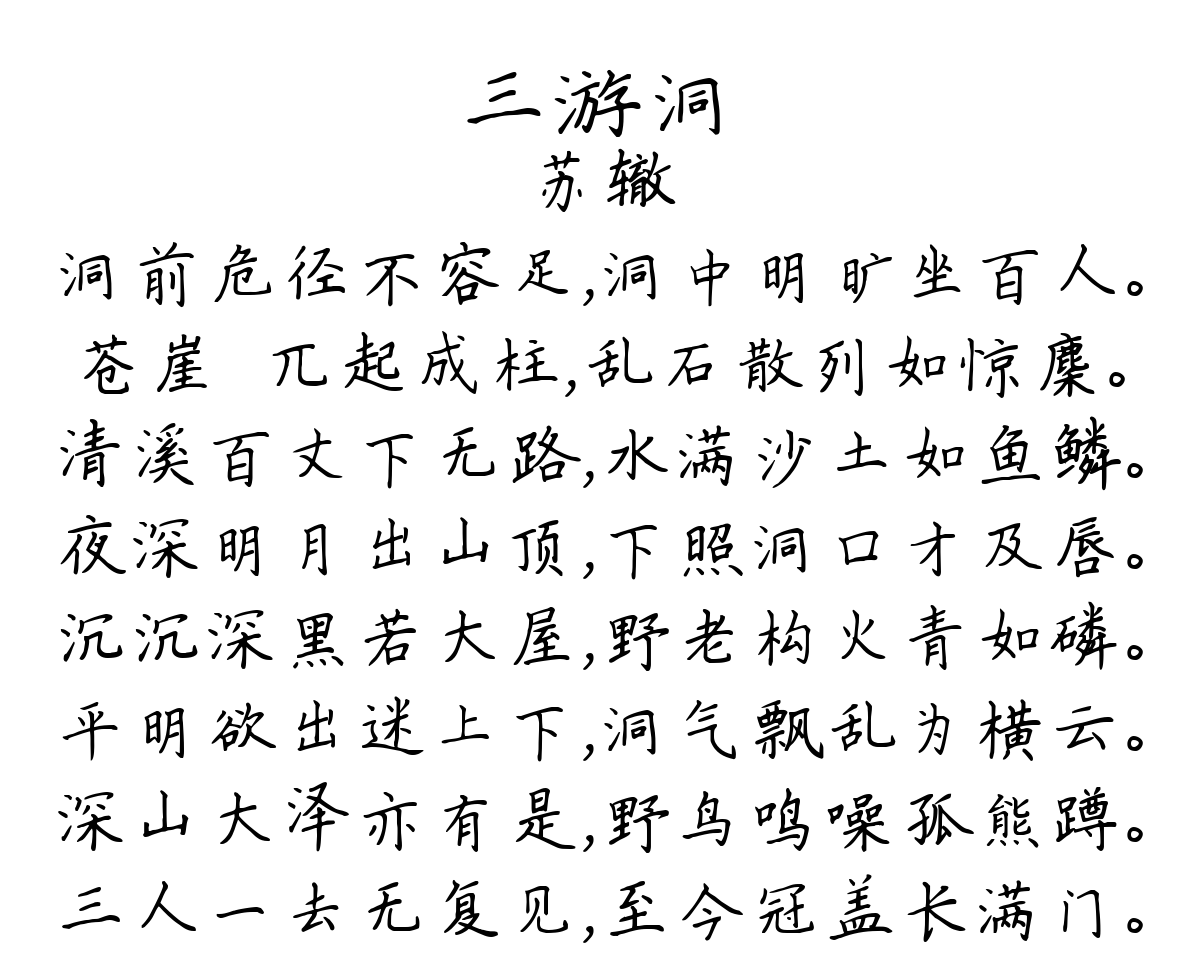 三游洞
苏辙
洞前危径不容足,洞中明旷坐百人。
苍崖 兀起成柱,乱石散列如惊麇。
清溪百丈下无路,水满沙土如鱼鳞。
夜深明月出山顶,下照洞口才及唇。
沉沉深黑若大屋,野老构火青如磷。
平明欲出迷上下,洞气飘乱为横云。
深山大泽亦有是,野鸟鸣噪孤熊蹲。
三人一去无复见,至今冠盖长满门。